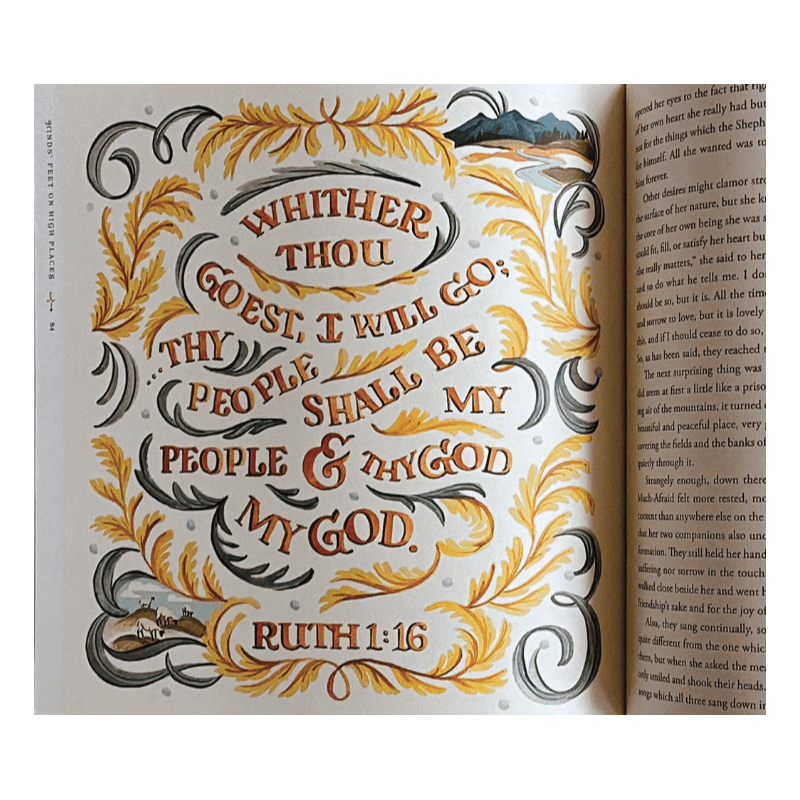 HINDS' FEET ON HIGH PLACES 84
WHITHER
THOU
GOEST, I WILL GO;
...THY
PEOPLE
SHALL BE
MY
PEOPLE & THY GOD
MY GOD.
RUTH 1:16
opened her eyes to the fact that
of her own heart she really had but
not for the things which the Sheph
for himself. All she wanted was to
him forever.
Other desires might clamor
the surface of her nature, but she
the core of her own being she was
could fit, fill, or satisfy her heart
she really matters," she said to her
and to do what he tells me. I
should be so, but it is. All the
and sorrow to love, but it is lovely
this, and if I should cease to do so,
So, as has been said, they reached
The next surprising thing was
did seem at first a little like a
ing air of the mountains, it turned
beautiful and peaceful place, very
covering the fields and the banks of
quietly through it.
Strangely enough, down there
Much-Afraid felt more rested,
content than anywhere else on the
that her two companions also
formation. They still held her hand
suffering nor sorrow in the touch
walked close beside her and went
friendship's sake and for the joy of
Also, they sang continually,
quite different from the one
them, but when she asked the
only smiled and shook their heads.
songs which all three sang down